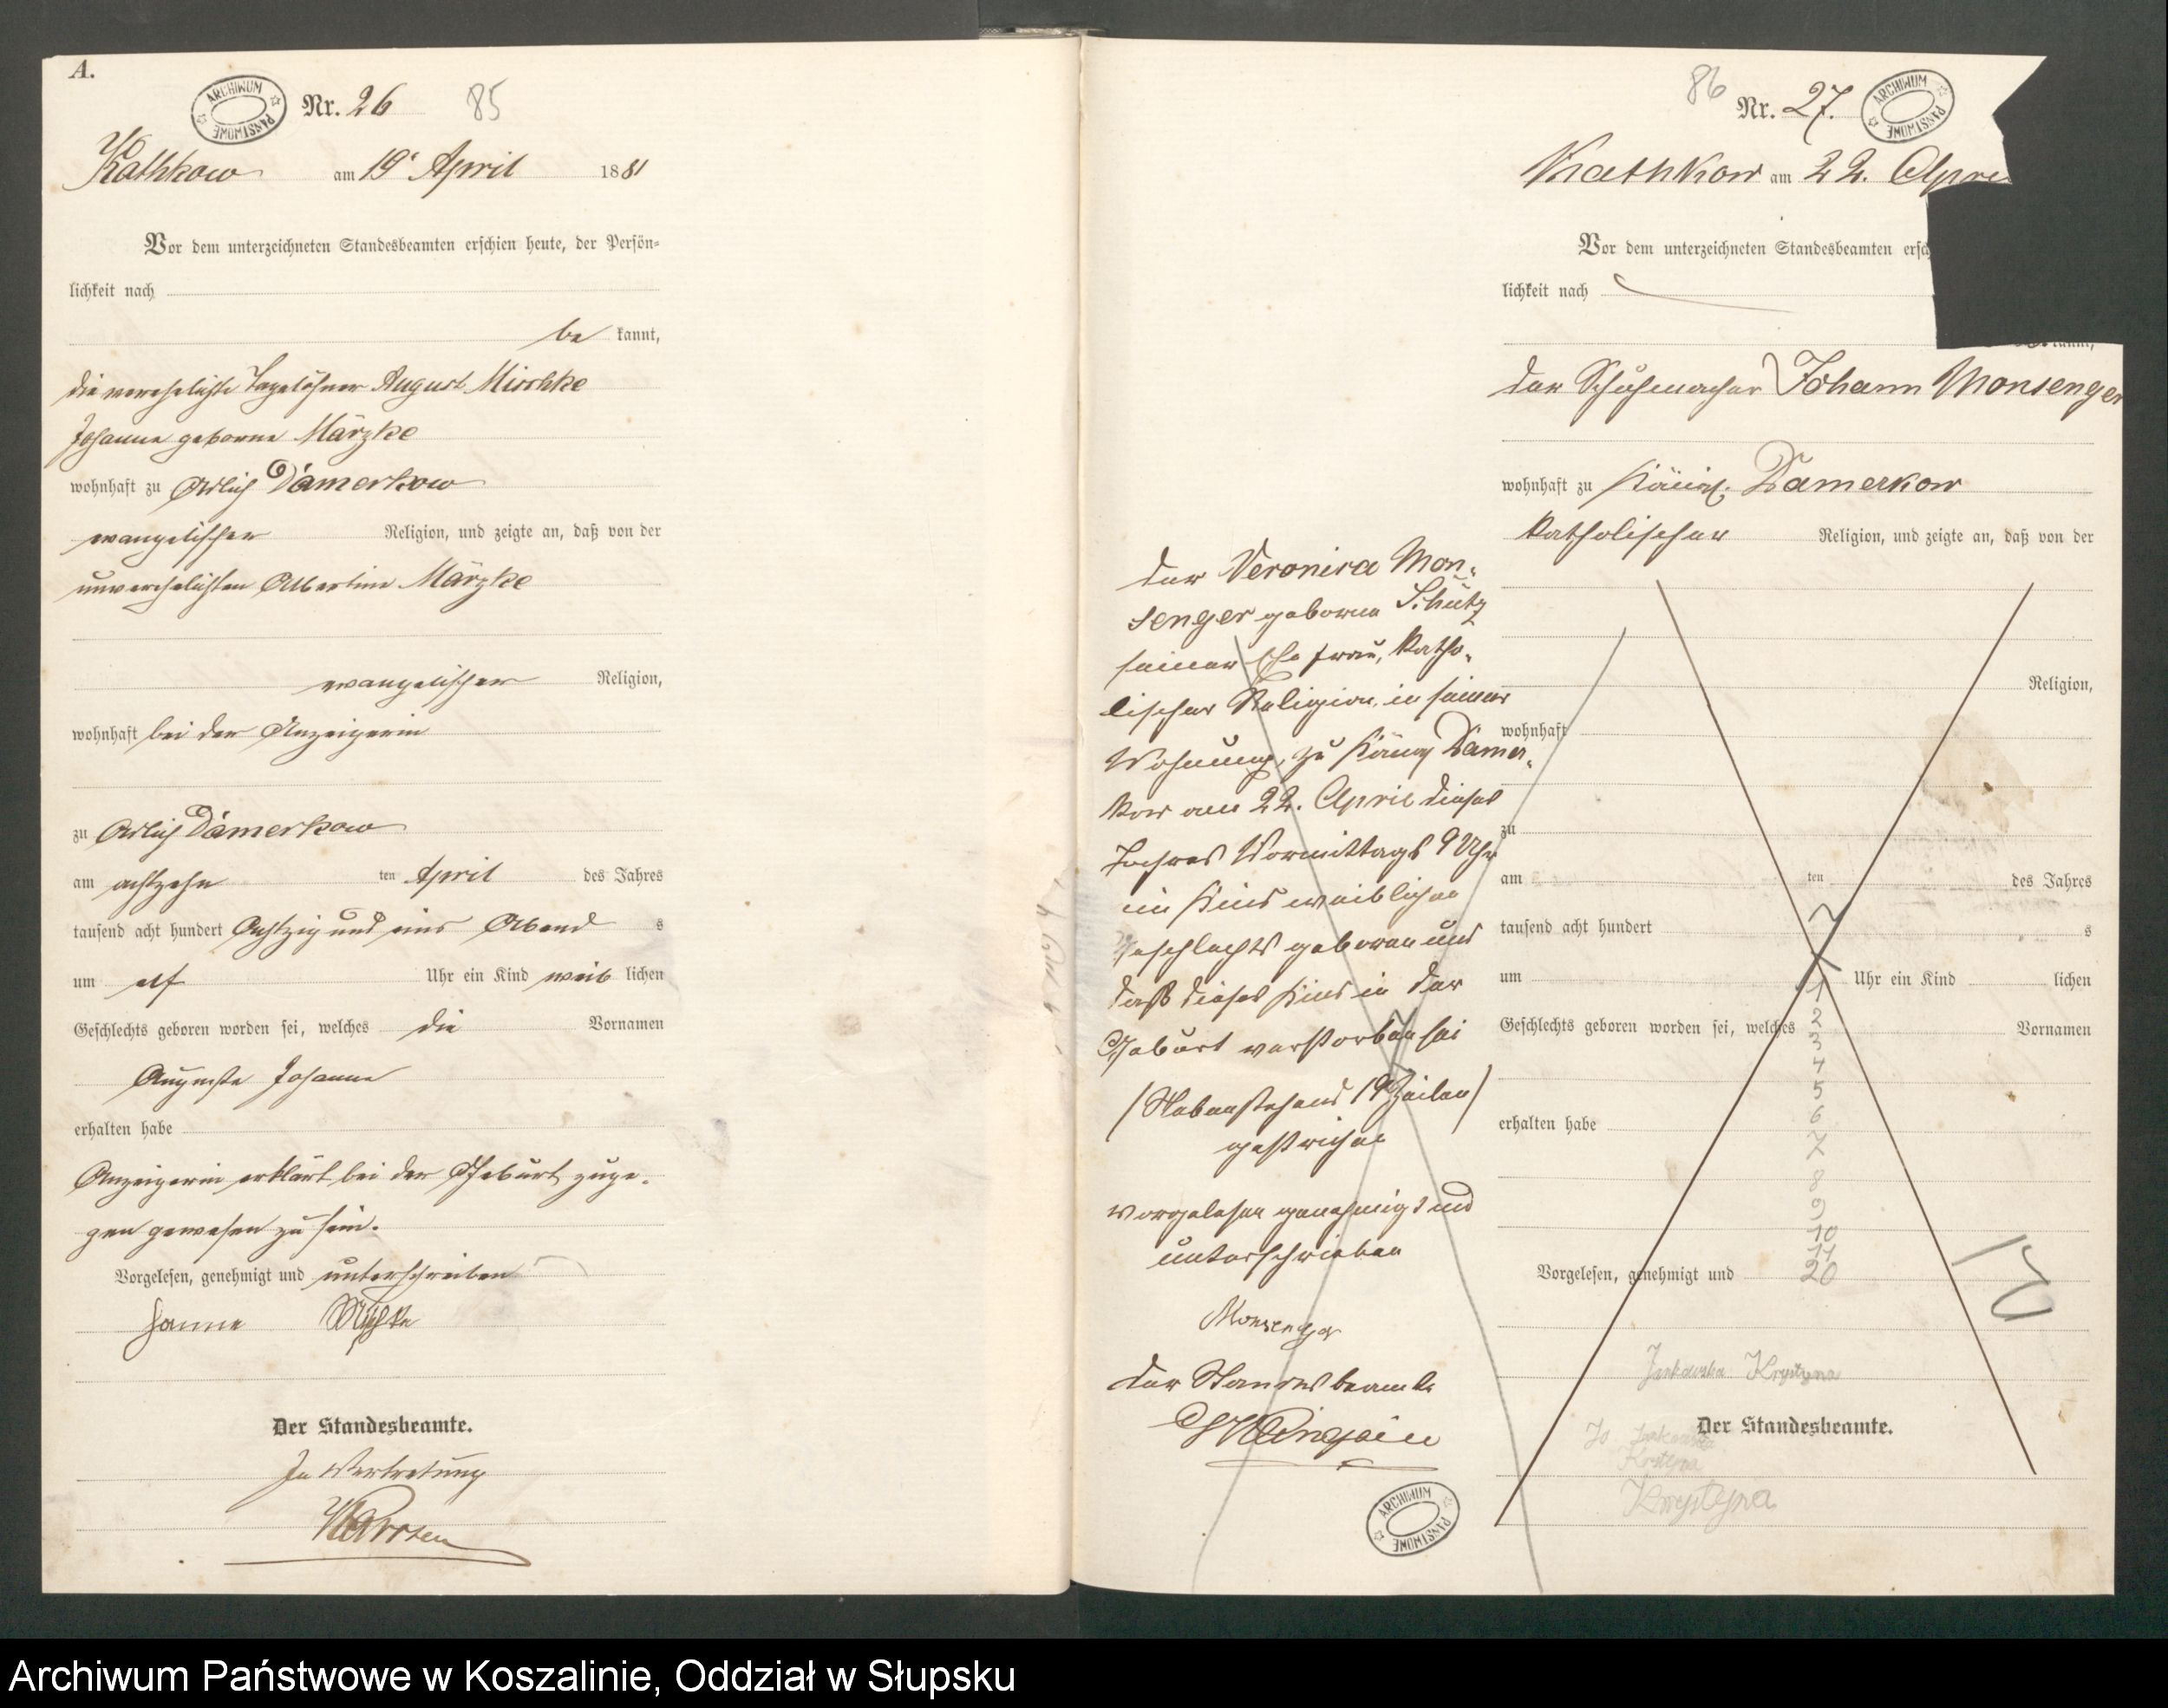 A.
ARCHIWUM PAŃSTWOWE
Nr. 26
85
Kathkow am 19ᵗ April 1881
Vor dem unterzeichneten Standesbeamten erschien heute, der Persön-
lichkeit nach
be kannt,
die verehelichte Tagelöhner August Mischke
Johanne geborne Märzke
wohnhaft zu Adlich Damerkow
evangelischer Religion, und zeigte an, daß von der
unverehelichten Albertine Märzke
evangelischer Religion,
wohnhaft bei der Anzeigerin
zu Adlich Damerkow
am achtzehn ten April des Jahres
tausend acht hundert Achtzig und eins Abend s
um elf Uhr ein Kind weib lichen
Geschlechts geboren worden sei, welches die Vornamen
Auguste Johanne
erhalten habe
Anzeigerin erklärt bei der Geburt zuge-
gen gewesen zu sein.
Vorgelesen, genehmigt und unterschrieben
Hanne Mischke
Der Standesbeamte.
In Vertretung
86
Nr. 27.
ARCHIWUM PAŃSTWOWE
Kathkow am 22. Apri
Vor dem unterzeichneten Standesbeamten ersch
lichkeit nach
kannt,
der Schuhmacher Johann Monsenger
wohnhaft zu Königl. Damerkow
katholischer Religion, und zeigte an, daß von der
der Veronica Mon-
senger geborne Schütz
seiner Ehefrau, katho-
lischer Religion, in seiner
Wohnung, zu Königl Damer-
kow am 22. April dieses
Jahres Vormittags 9 Uhr
ein Kind weiblichen
Geschlechts geboren und
daß dieses Kind in der
Geburt verstorben sei
(Nebenstehend 19 Zeilen)
gestrichen
vorgelesen genehmigt und
unterschrieben
Monsenger
der Standesbeamte
ARCHIWUM PAŃSTWOWE
Religion,
wohnhaft
zu
am ten des Jahres
tausend acht hundert s
um Uhr ein Kind lichen
Geschlechts geboren worden sei, welches Vornamen
erhalten habe
1
2
3
4
5
6
7
8
9
10
11
20
Vorgelesen, genehmigt und
Jankowska Krystyna
Der Standesbeamte.
Jo Jankowska
Krystyna
Krystyna
Archiwum Państwowe w Koszalinie, Oddział w Słupsku